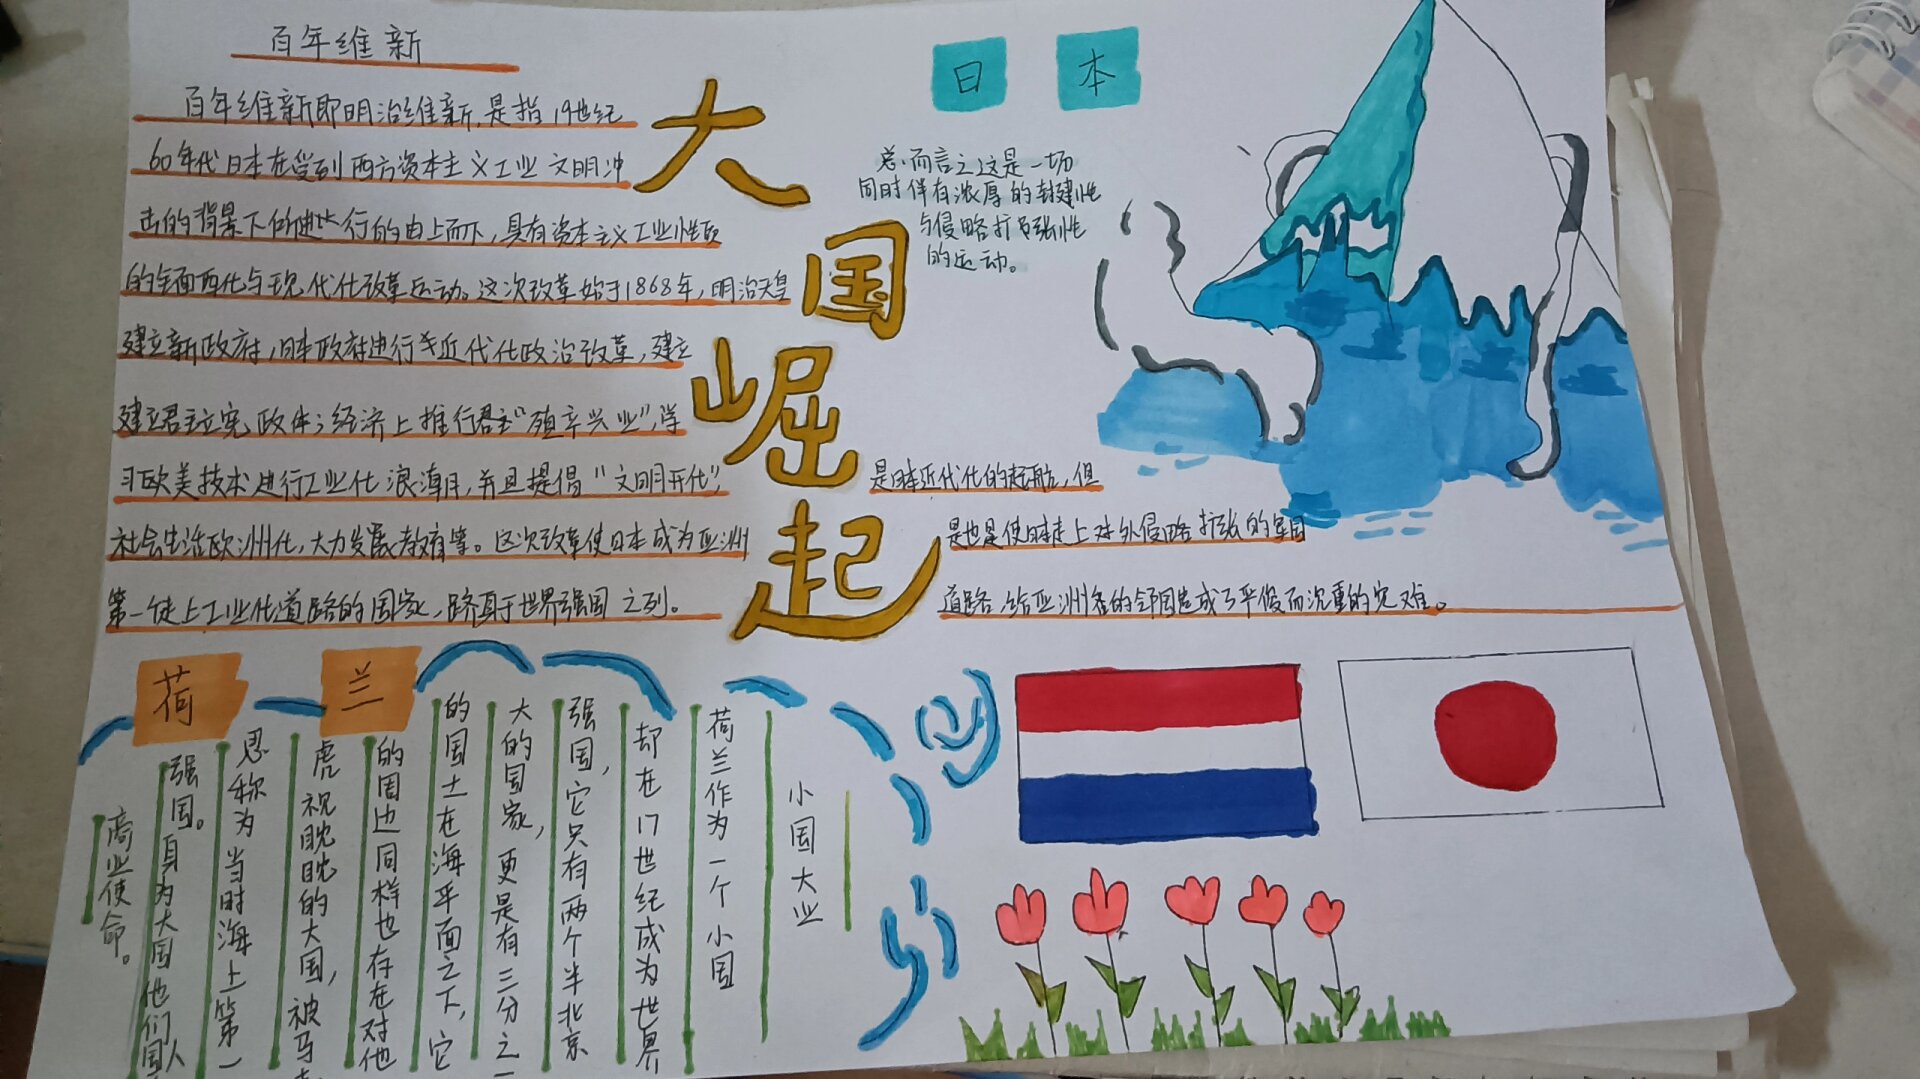 百年维新
百年维新即明治维新,是指19世纪
60年代日本在受到西方资本主义工业文明冲
击的背景下所进行的由上而下,具有资本主义工业性质
的全面西化与现代化改革运动。这次改革始于1868年,明治天皇
建立新政府,日本政府进行近代化政治改革,建立
建立君主立宪政体;经济上推行"殖产兴业",学
习欧美技术进行工业化浪潮,并且提倡"文明开化",
社会生活欧洲化,大力发展教育等。这次改革使日本成为亚洲
第一徒上工业化道路的国家,跻身于世界强国之列。
大国崛起
日本
总而言之这是一场
同时伴有浓厚的封建性
与侵略扩张性
的运动。
是日本近代化的起航,但
是也是使日本走上对外侵略扩张的军国
道路,给亚洲各的邻国造成了严峻而沉重的灾难。
荷兰
小国大业
荷兰作为一个小国
却在17世纪成为世界
强国,它只有两个半北京
大的国家,更是有三分之一
的国土在海平面之下,它
的周边同样也存在对他
虎视眈眈的大国,被马
恩称为当时海上第一
强国。身为大国他们国人
商业使命。